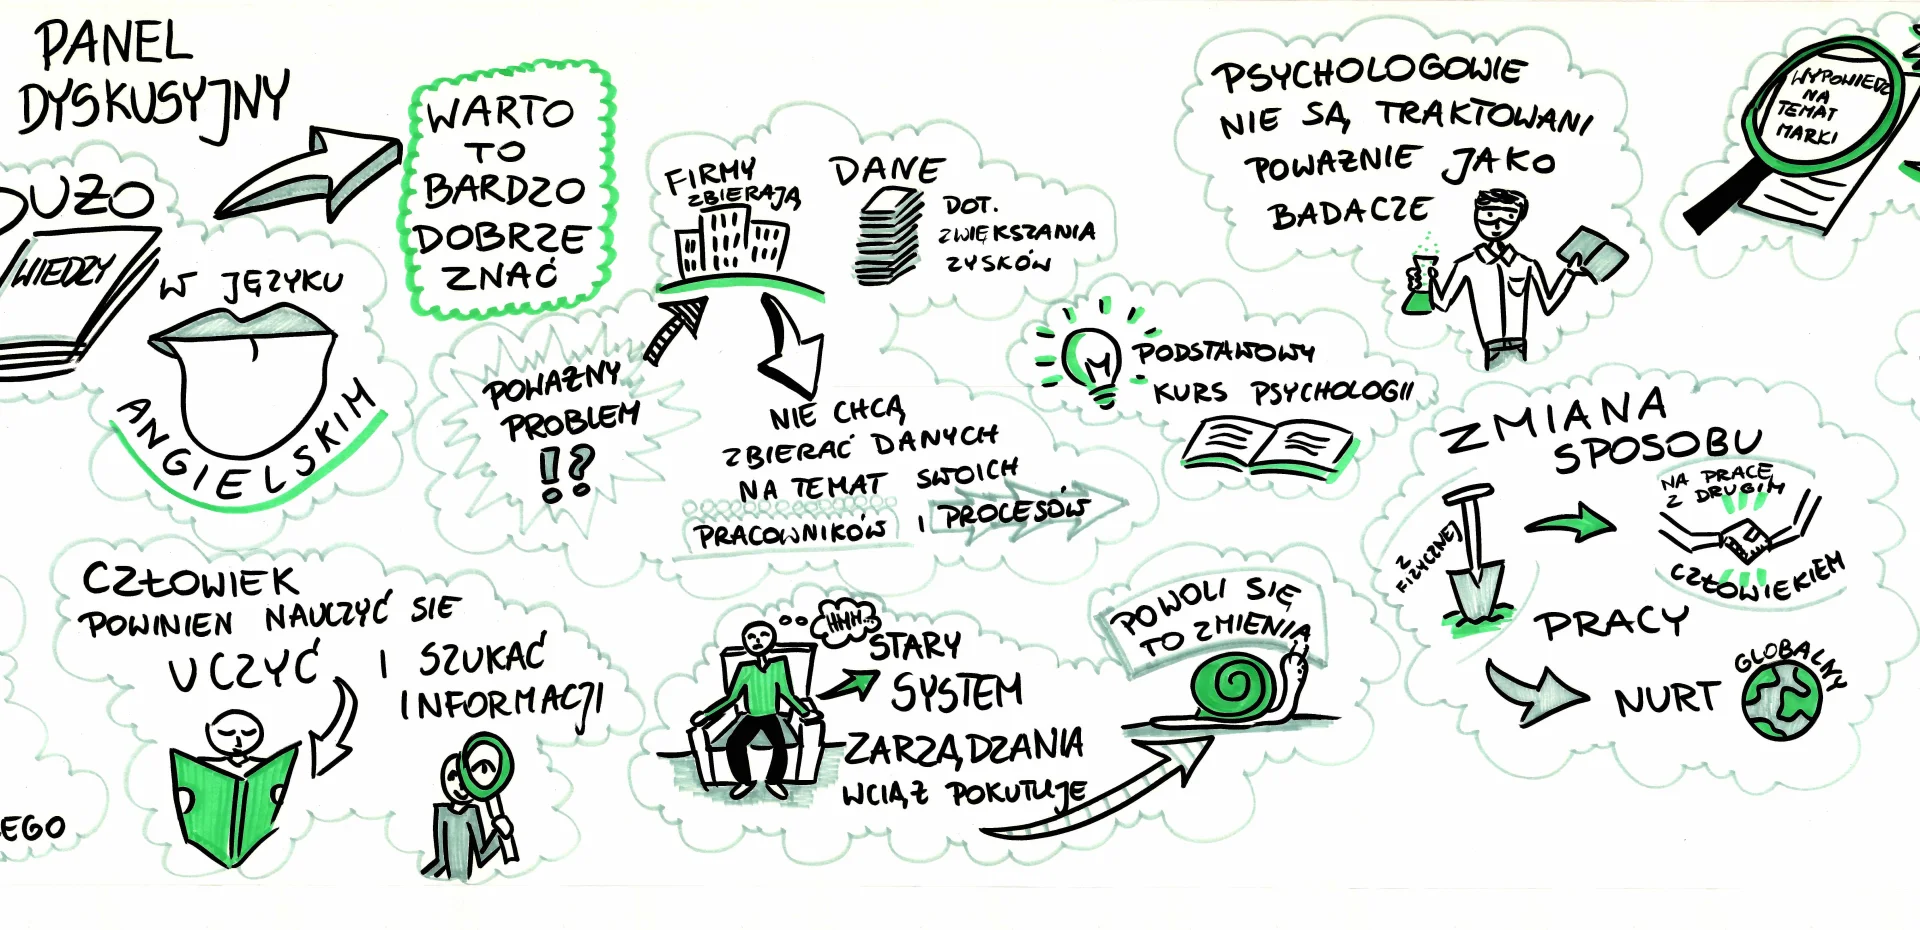 PANEL
DYSKUSYJNY
DUŻO
WIEDZY
W JĘZYKU
ANGIELSKIM
WARTO
TO
BARDZO
DOBRZE
ZNAĆ
POWAŻNY
PROBLEM
!?
FIRMY
ZBIERAJĄ
DANE
DOT.
ZWIĘKSZANIA
ZYSKÓW
NIE CHCĄ
ZBIERAĆ DANYCH
NA TEMAT SWOICH
PRACOWNIKÓW I PROCESÓW
PODSTAWOWY
KURS PSYCHOLOGII
PSYCHOLOGOWIE
NIE SĄ TRAKTOWANI
POWAŻNIE JAKO
BADACZE
WYPOWIEDZ
NA
TEMAT
MARKI
ZMIANA
SPOSOBU
Z FIZYCZNEJ
NA PRACĘ
Z DRUGIM
CZŁOWIEKIEM
PRACY
NURT
GLOBALNY
CZŁOWIEK
POWINIEN NAUCZYĆ SIĘ
UCZYĆ I SZUKAĆ
INFORMACJI
EGO
HMM...
STARY
SYSTEM
ZARZĄDZANIA
WCIĄŻ POKUTUJE
POWOLI SIĘ
TO ZMIENIA